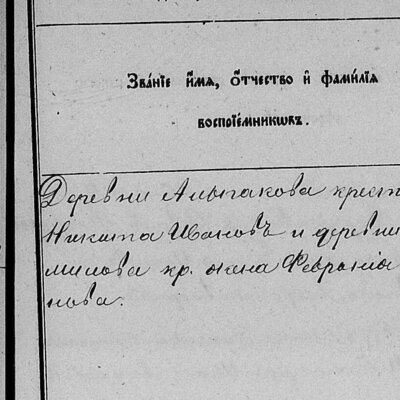 Зва́нїе и҆́мѧ, ѻ҆́тчество и҆ фамилїѧ
воспрїе́мникѡвъ.
Деревни Алыпакова крест
Никита Ивановъ и деревни
милова кр. жена Февронія
нова.